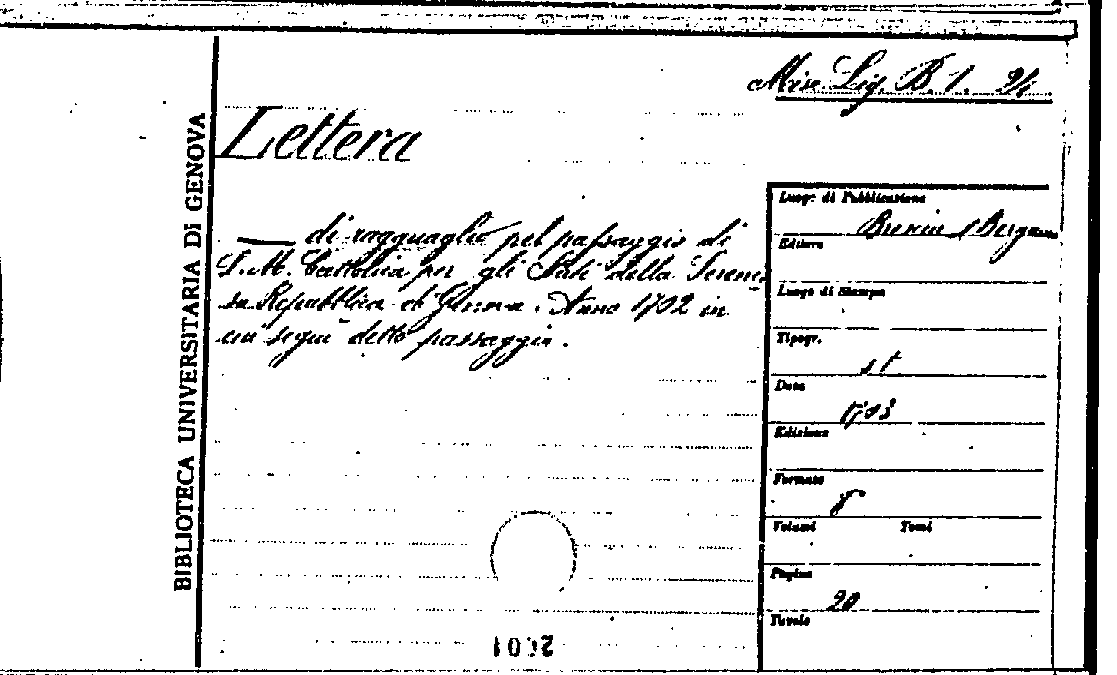 Misc. Lig. B. 1. 24
BIBLIOTECA UNIVERSITARIA DI GENOVA
Lettera
— di ragguaglio pel passaggio di
S. M. Cattolica per gli Stati della Sereniss
ma Repubblica di Genova. Anno 1702 in
cui seguì detto passaggio.
Luogo di Pubblicazione
Brescia
Editore
Luogo di Stampa
Tipogr.
st
Data
1703
Edizione
Formato
8
Volumi Tomi
Pagine
20
Tavole